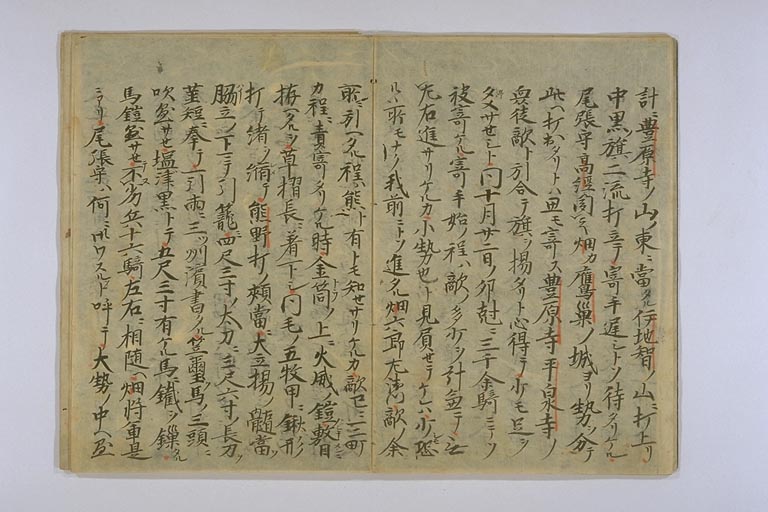 計ニ豊原寺ノ山ノ東ニ當タル伊地智ノ山ニ打上リ
中黒旗ニ流打立テ寄手遅シトソ待タリケル
尾張守高經聞之畑カ鷹巣ノ城ヨリ勢ヲ分テ
此ヘ打出タリトハ思モ寄ス豊原寺平泉寺ノ
衆徒敵ト引合テ旗ヲ揚タリト心得テ少モ足ヲ
タメサセシト同十月廿二日ノ卯尅ニ三千余騎ニテソ
被寄ケル寄手始ノ程ハ敵ノ多少ヲ計兼テ
左右進サリケルカ小勢也ト見屓セテケレハ少恐
ル所モナク我前ニトソ進タル畑六郎左衛門敵ノ余
所ニ引ヘタル程ハ態ト有トモ知セサリケルカ敵已ニ三町
カ程ニ責寄タリケル時金筒ノ上ニ火威ノ鎧敷目
拵ヘタルヲ草摺長ニ着下シ同毛ノ五枚甲ニ鍬形
打テ緒ヲ縮テ熊野打ノ頬當ニ大立揚ノ髄當
脇立ノ下マテ引籠四尺三寸ノ太刀ニ三尺六寸ノ長刀
茎短ニ拳テ一引両ニ三ツ州濱書タル笠璽馬ノ三頭ニ
吹懸サセ塩津黒トテ五尺三寸有ケル馬ニ鐵ヲ鏁タル
馬鎧懸サセテ不劣兵十六騎左右ニ相随ヘ畑将軍是
ニアリ尾張守ハ何クニ御ワスルソト呼テ大勢ノ中ヘ懸